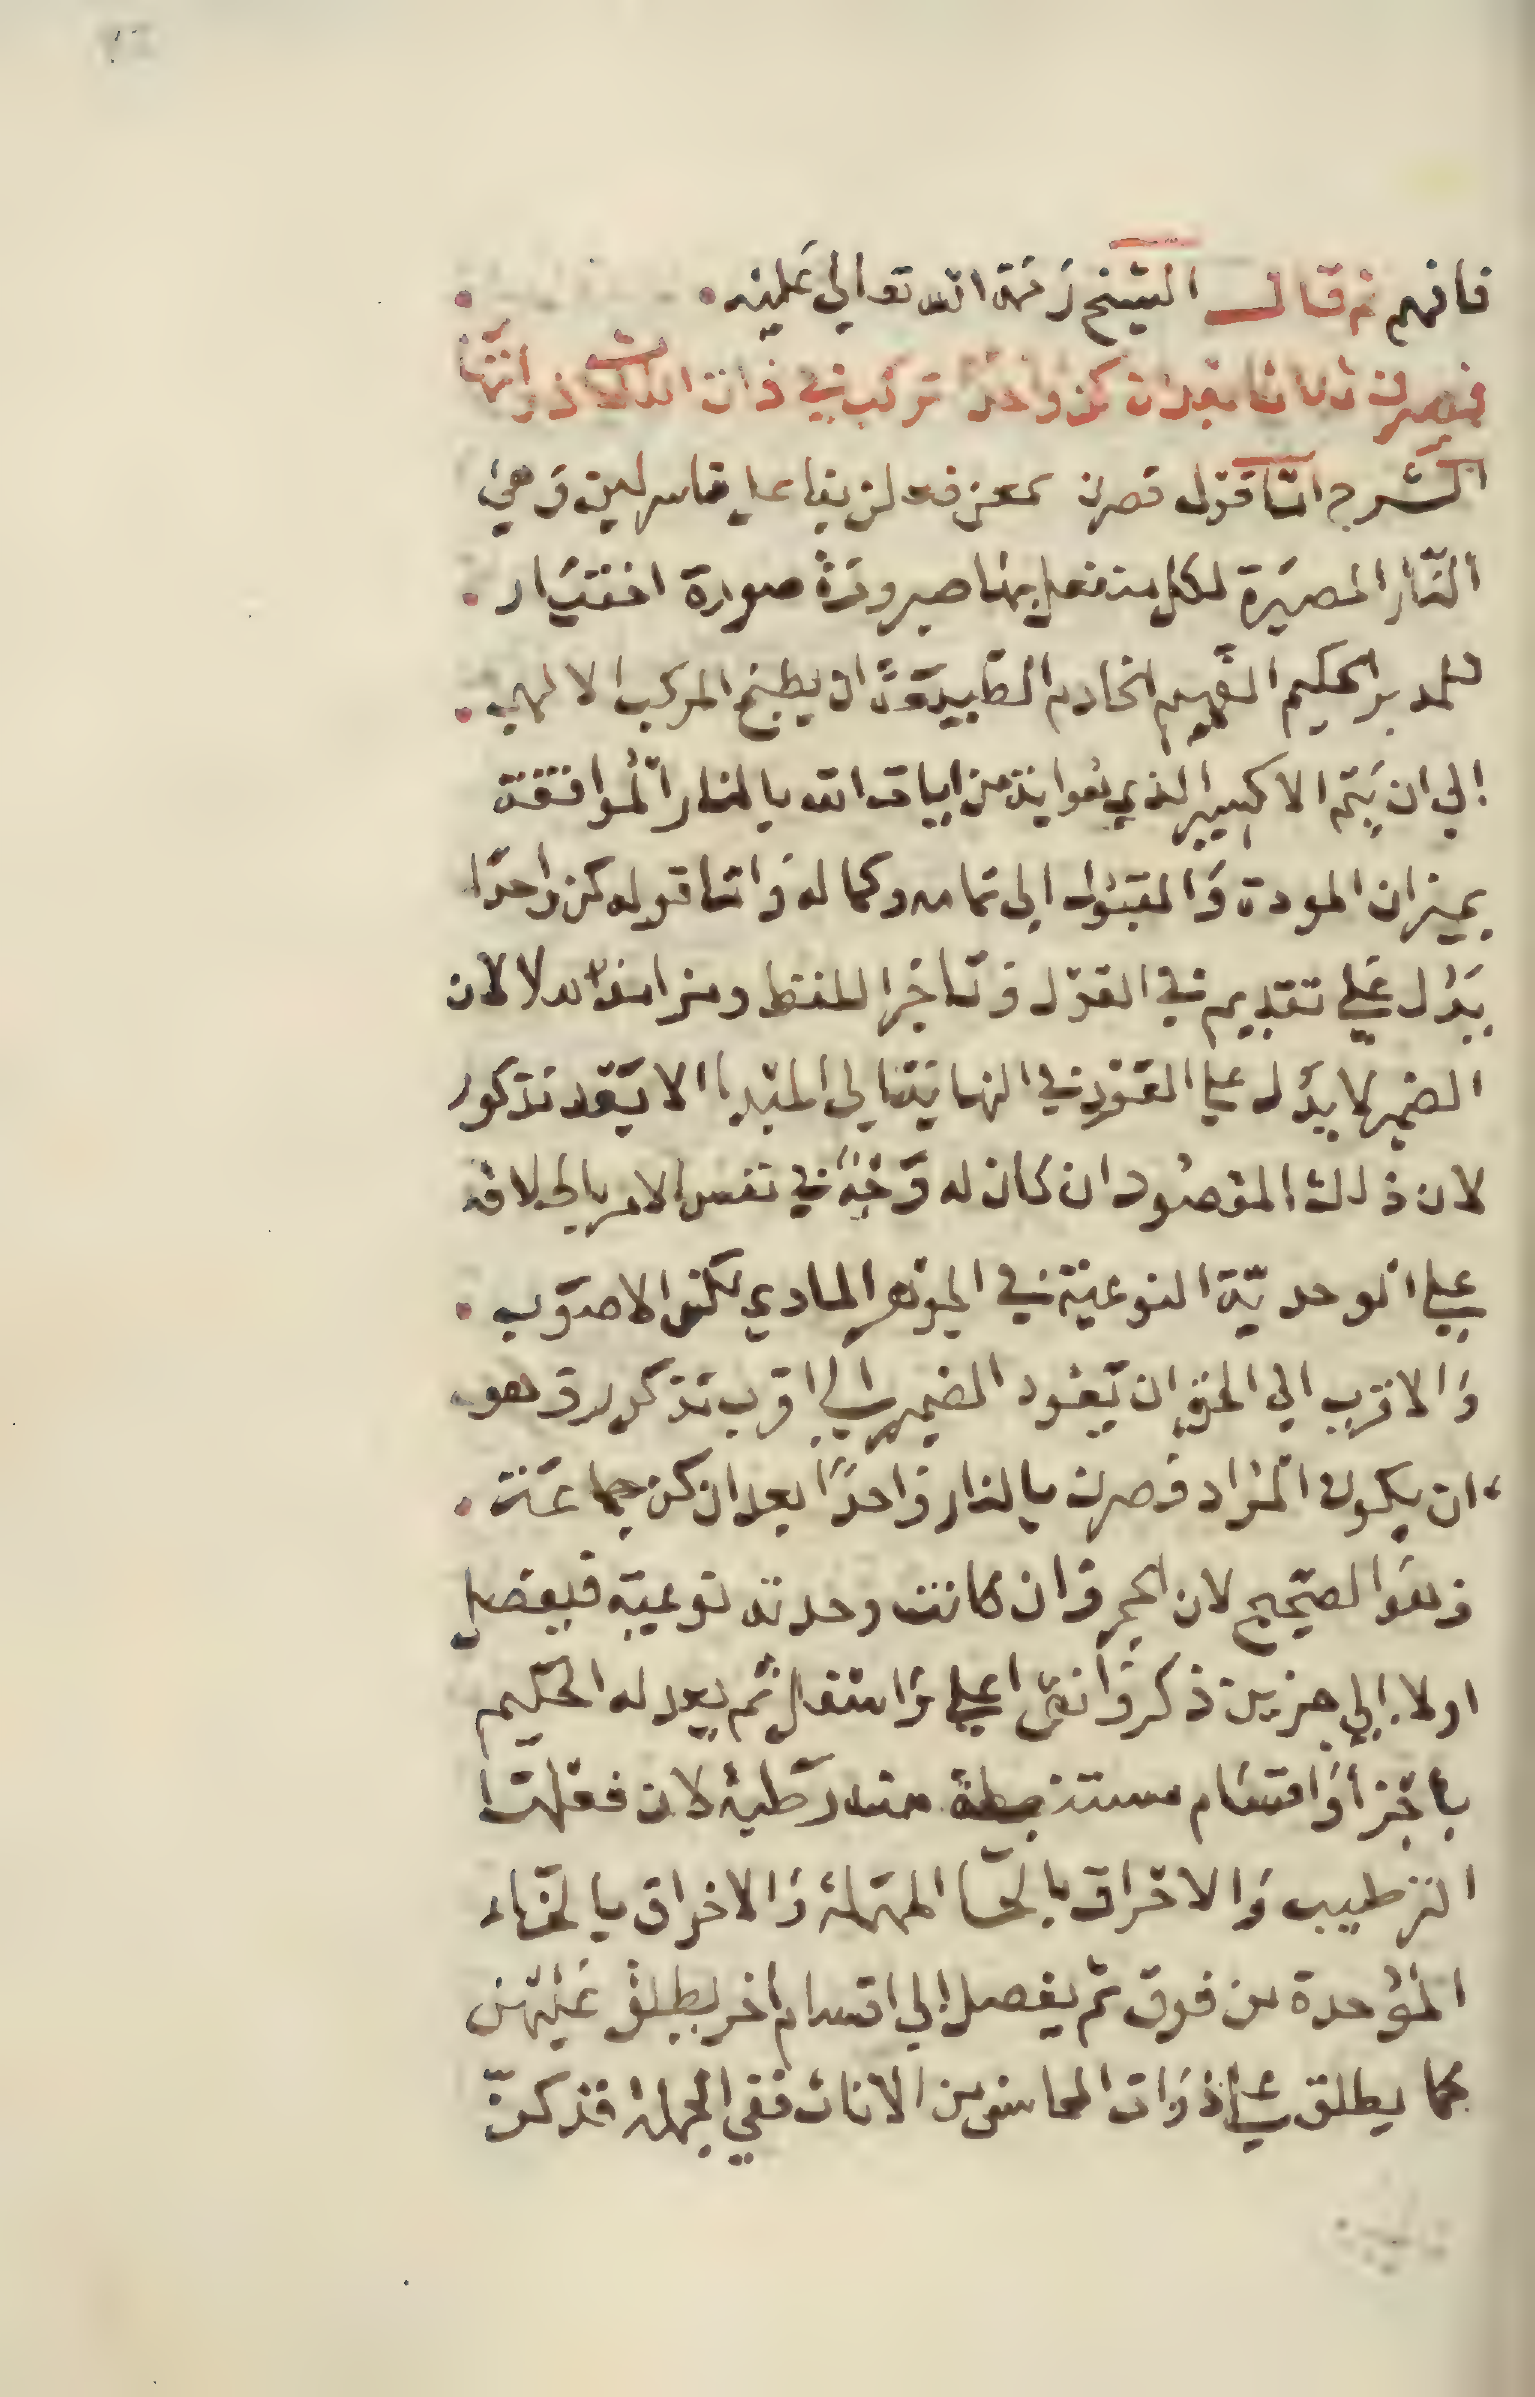 فافهم ثم قال الشيخ رحمة الله تعالي عليه
فصرن ثلاثا بعد ان كن واحدا تركب في ذات الثلاث ذواتها
الشرح اما قوله فصرن
النار المصيرة لكل منفعل بها صيرورة صورة اختيار
للمدبر الحكيم الفهيم الخادم الطبيعة ان يطبخ المركب الالهي
الي ان يتم الاكسير الذي هو اية من ايات الله بالنار الموافقة
بميزان المودة والقبول الي تمامه وكماله واما قوله كن واحدا
يدل علي تقديم في القول وتاخر اللفظ لان
الضمير لا يدل علي العود في النهاية الي المبدا الا بعد مذكور
لان ذلك المقصود ان كان له وجه في نفس الامر باطلاقه
علي الوحدية النوعية في الجوهر المادي لكن الاصوب
والاقرب الي الحق ان يعود الضمير الي اقرب مذكور وهو
ان يكون المراد فصرن بالنار واحدا بعد ان كن جماعة
وهو الصحيح لان الحجر وان كانت وحدته نوعية فيفصل
اولا الي جزين ذكر وانثي اعلي واسفل ثم يعد له الحكيم
باجزا واقسام مستنبطة منه رطبة لان فعلها
الترطيب والاحراق بالحا المهملة والاخراق بالخاء
الموحدة من فوق ثم يفصل الي اقسام اخر يطلق عليهن
كما يطلق علي ذوات المحاسن من الاناث ففي الجملة قد كن